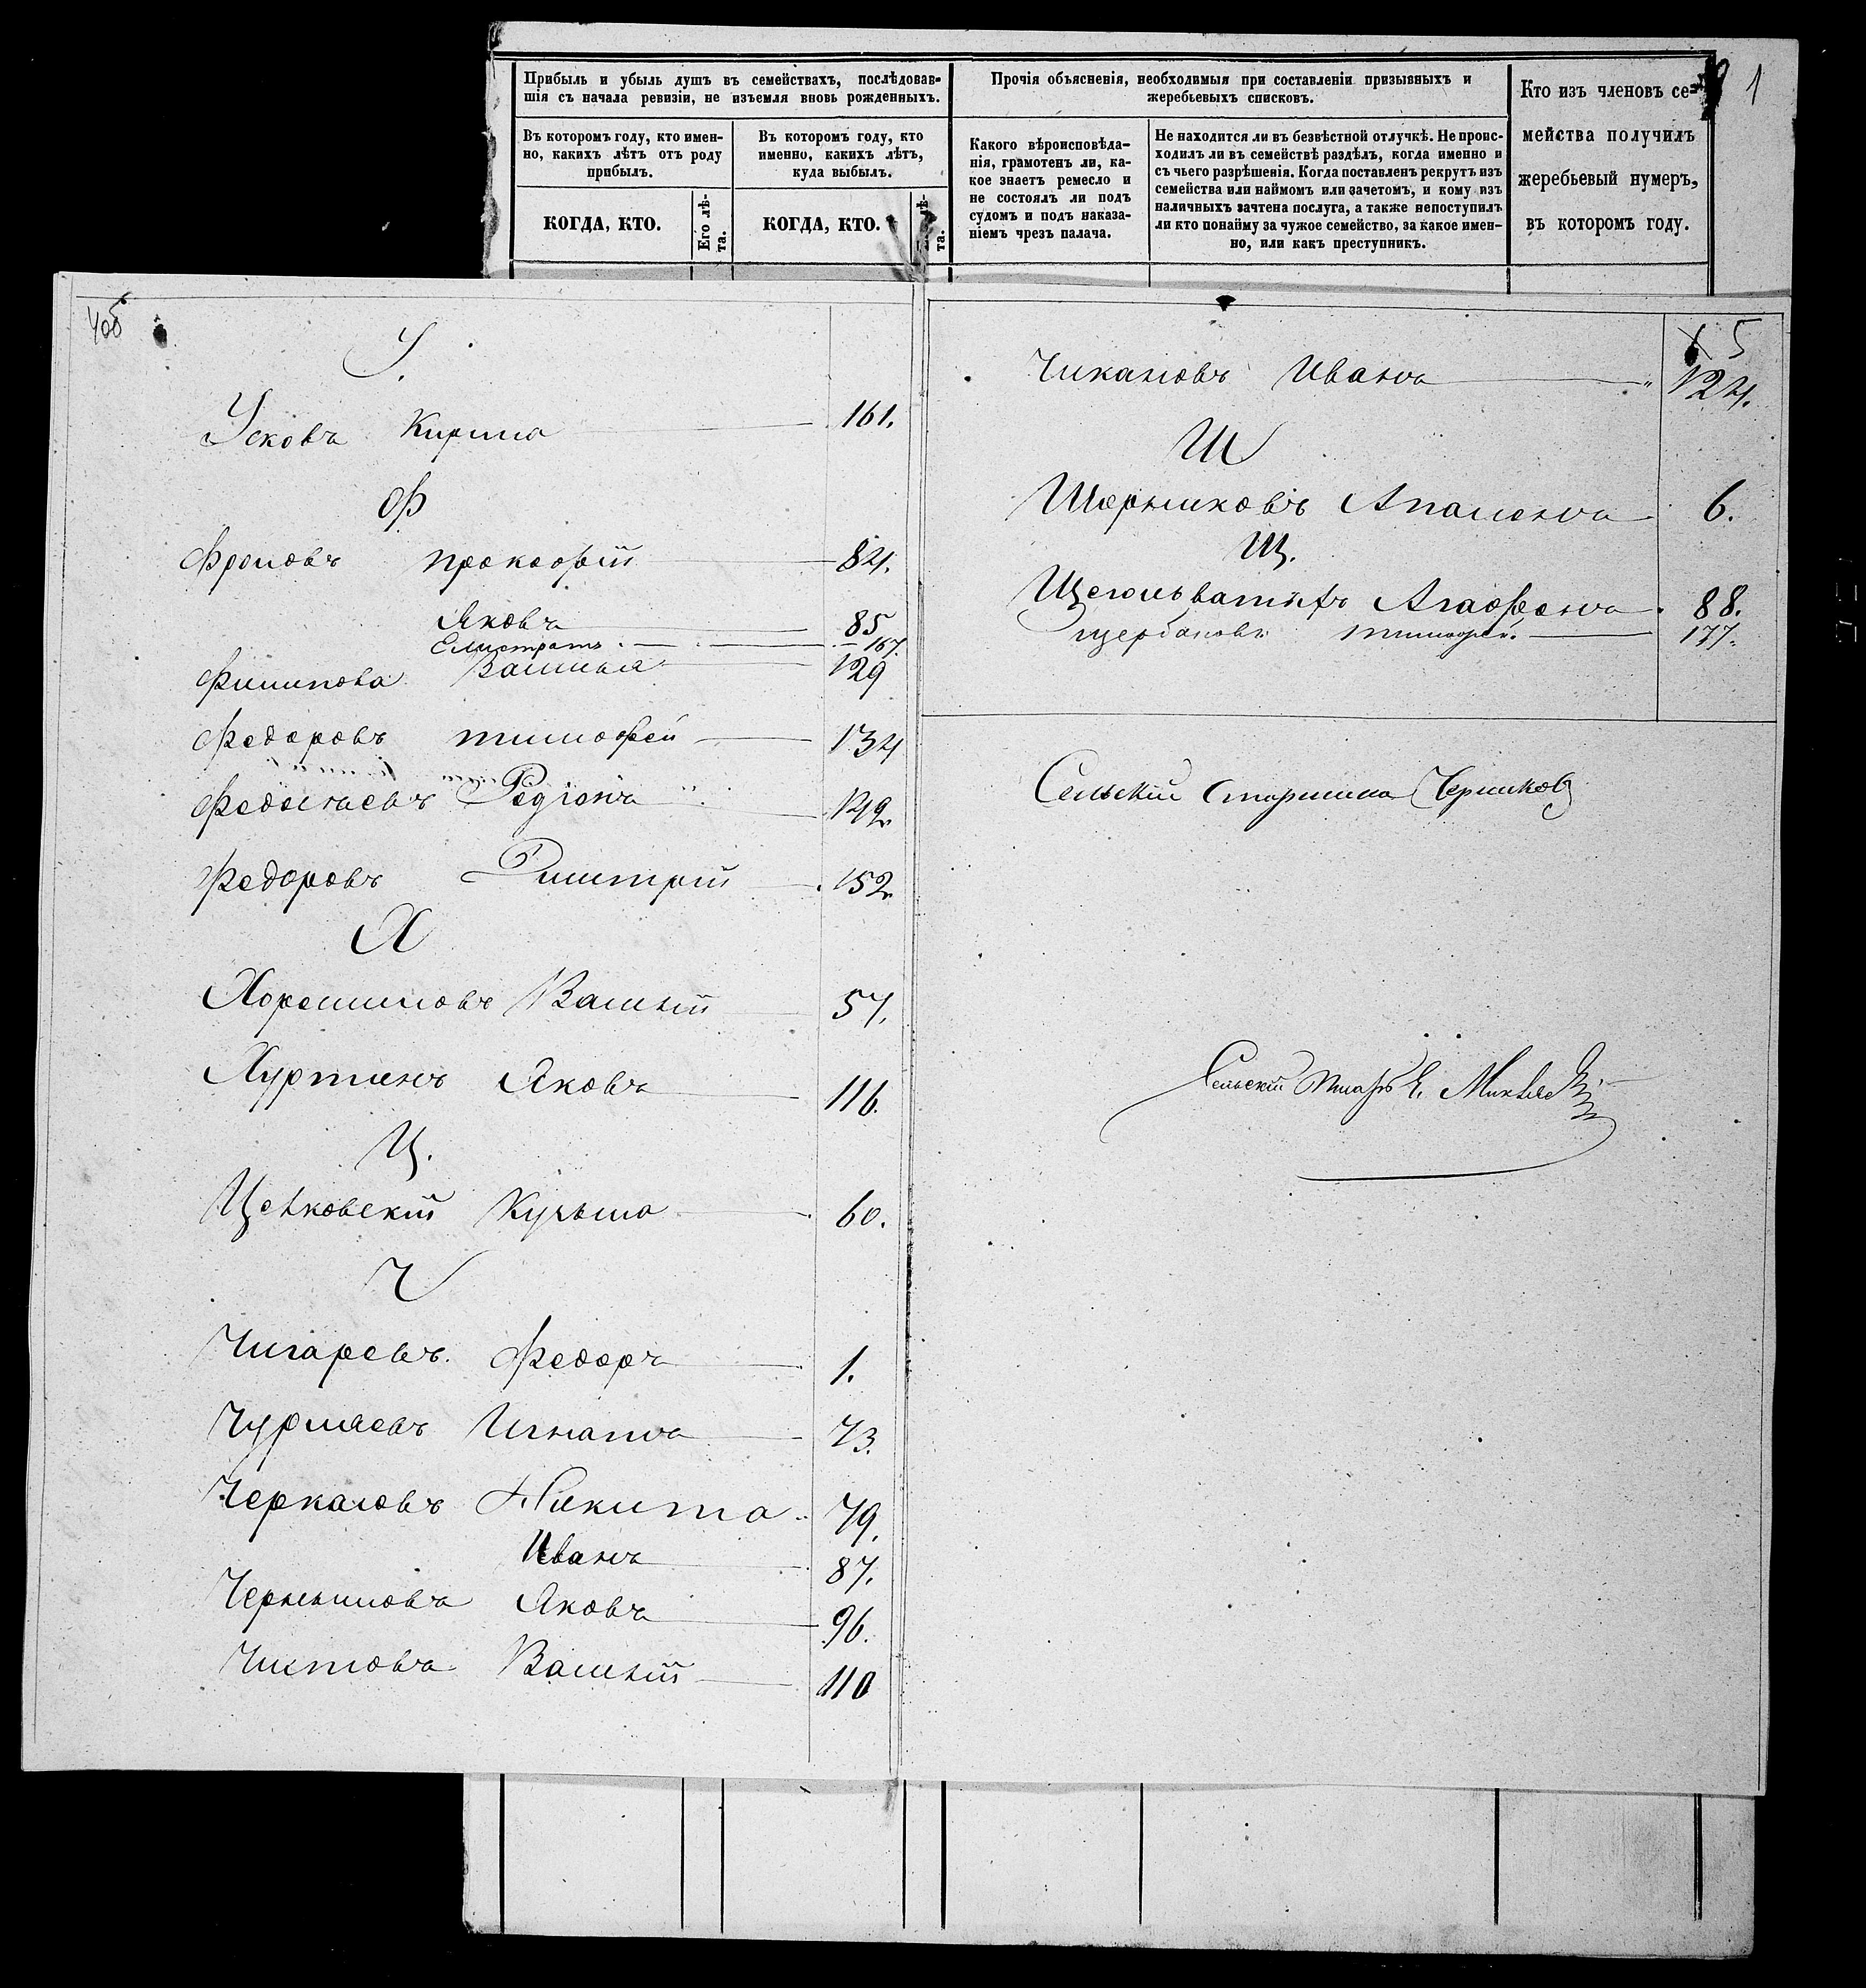 Прибыль и убыль душъ въ семействахъ, послѣдовав-
шія съ начала ревизіи, не изъемля вновь рожденныхъ.
Въ которомъ году, кто имен-
но, какихъ лѣтъ отъ роду
прибылъ.
КОГДА, КТО.
Его лѣ-
та.
Въ которомъ году, кто
именно, какихъ лѣтъ,
куда выбылъ.
КОГДА, КТО.
та.
Прочія объясненія, необходимыя при составленіи призывныхъ и
жеребьевыхъ списковъ.
Какого вѣроисповѣда-
нія, грамотенъ ли, ка-
кое знаетъ ремесло и
не состоялъ ли подъ
судомъ и подъ наказа-
ніемъ чрезъ палача.
Не находится ли въ безвѣстной отлучкѣ. Не проис-
ходилъ ли въ семействѣ раздѣлъ, когда именно и
съ чьего разрѣшенія. Когда поставленъ рекрутъ изъ
семейства или наймомъ или зачетомъ, и кому изъ
наличныхъ зачтена послуга, а также непоступилъ
ли кто понайму за чужое семейство, за какое имен-
но, или какъ преступникъ.
Кто изъ членовъ се-
мейства получилъ
жеребьевый нумеръ,
въ которомъ году.
1
У.
Усковъ Кирила 161.
Ф
Фроловъ Прокофій 84.
Яковъ 85
Елистратъ 167.
Филипова Василья 129
Федоровъ Тимофей 134
Родіонъ 149.
Федоровъ Димитрій 152
Х
Хорошиловъ Василій 57.
Хуртинъ Яковъ 116.
Ц.
Кузьма 60.
Ч
Чигаревъ Федоръ 1.
Чурляевъ Игнатъ 73.
Черкасовъ Никита 79.
Иванъ 87.
Яковъ 96.
Чистовъ Василій 110
5
Чикановъ Иванъ 124.
Ш
Шорниковъ 6.
Щ.
Агафонъ 88.
Щербаковъ Тимофей. 177.
Сельскій Старшина Чериков
Сельскій Писарь